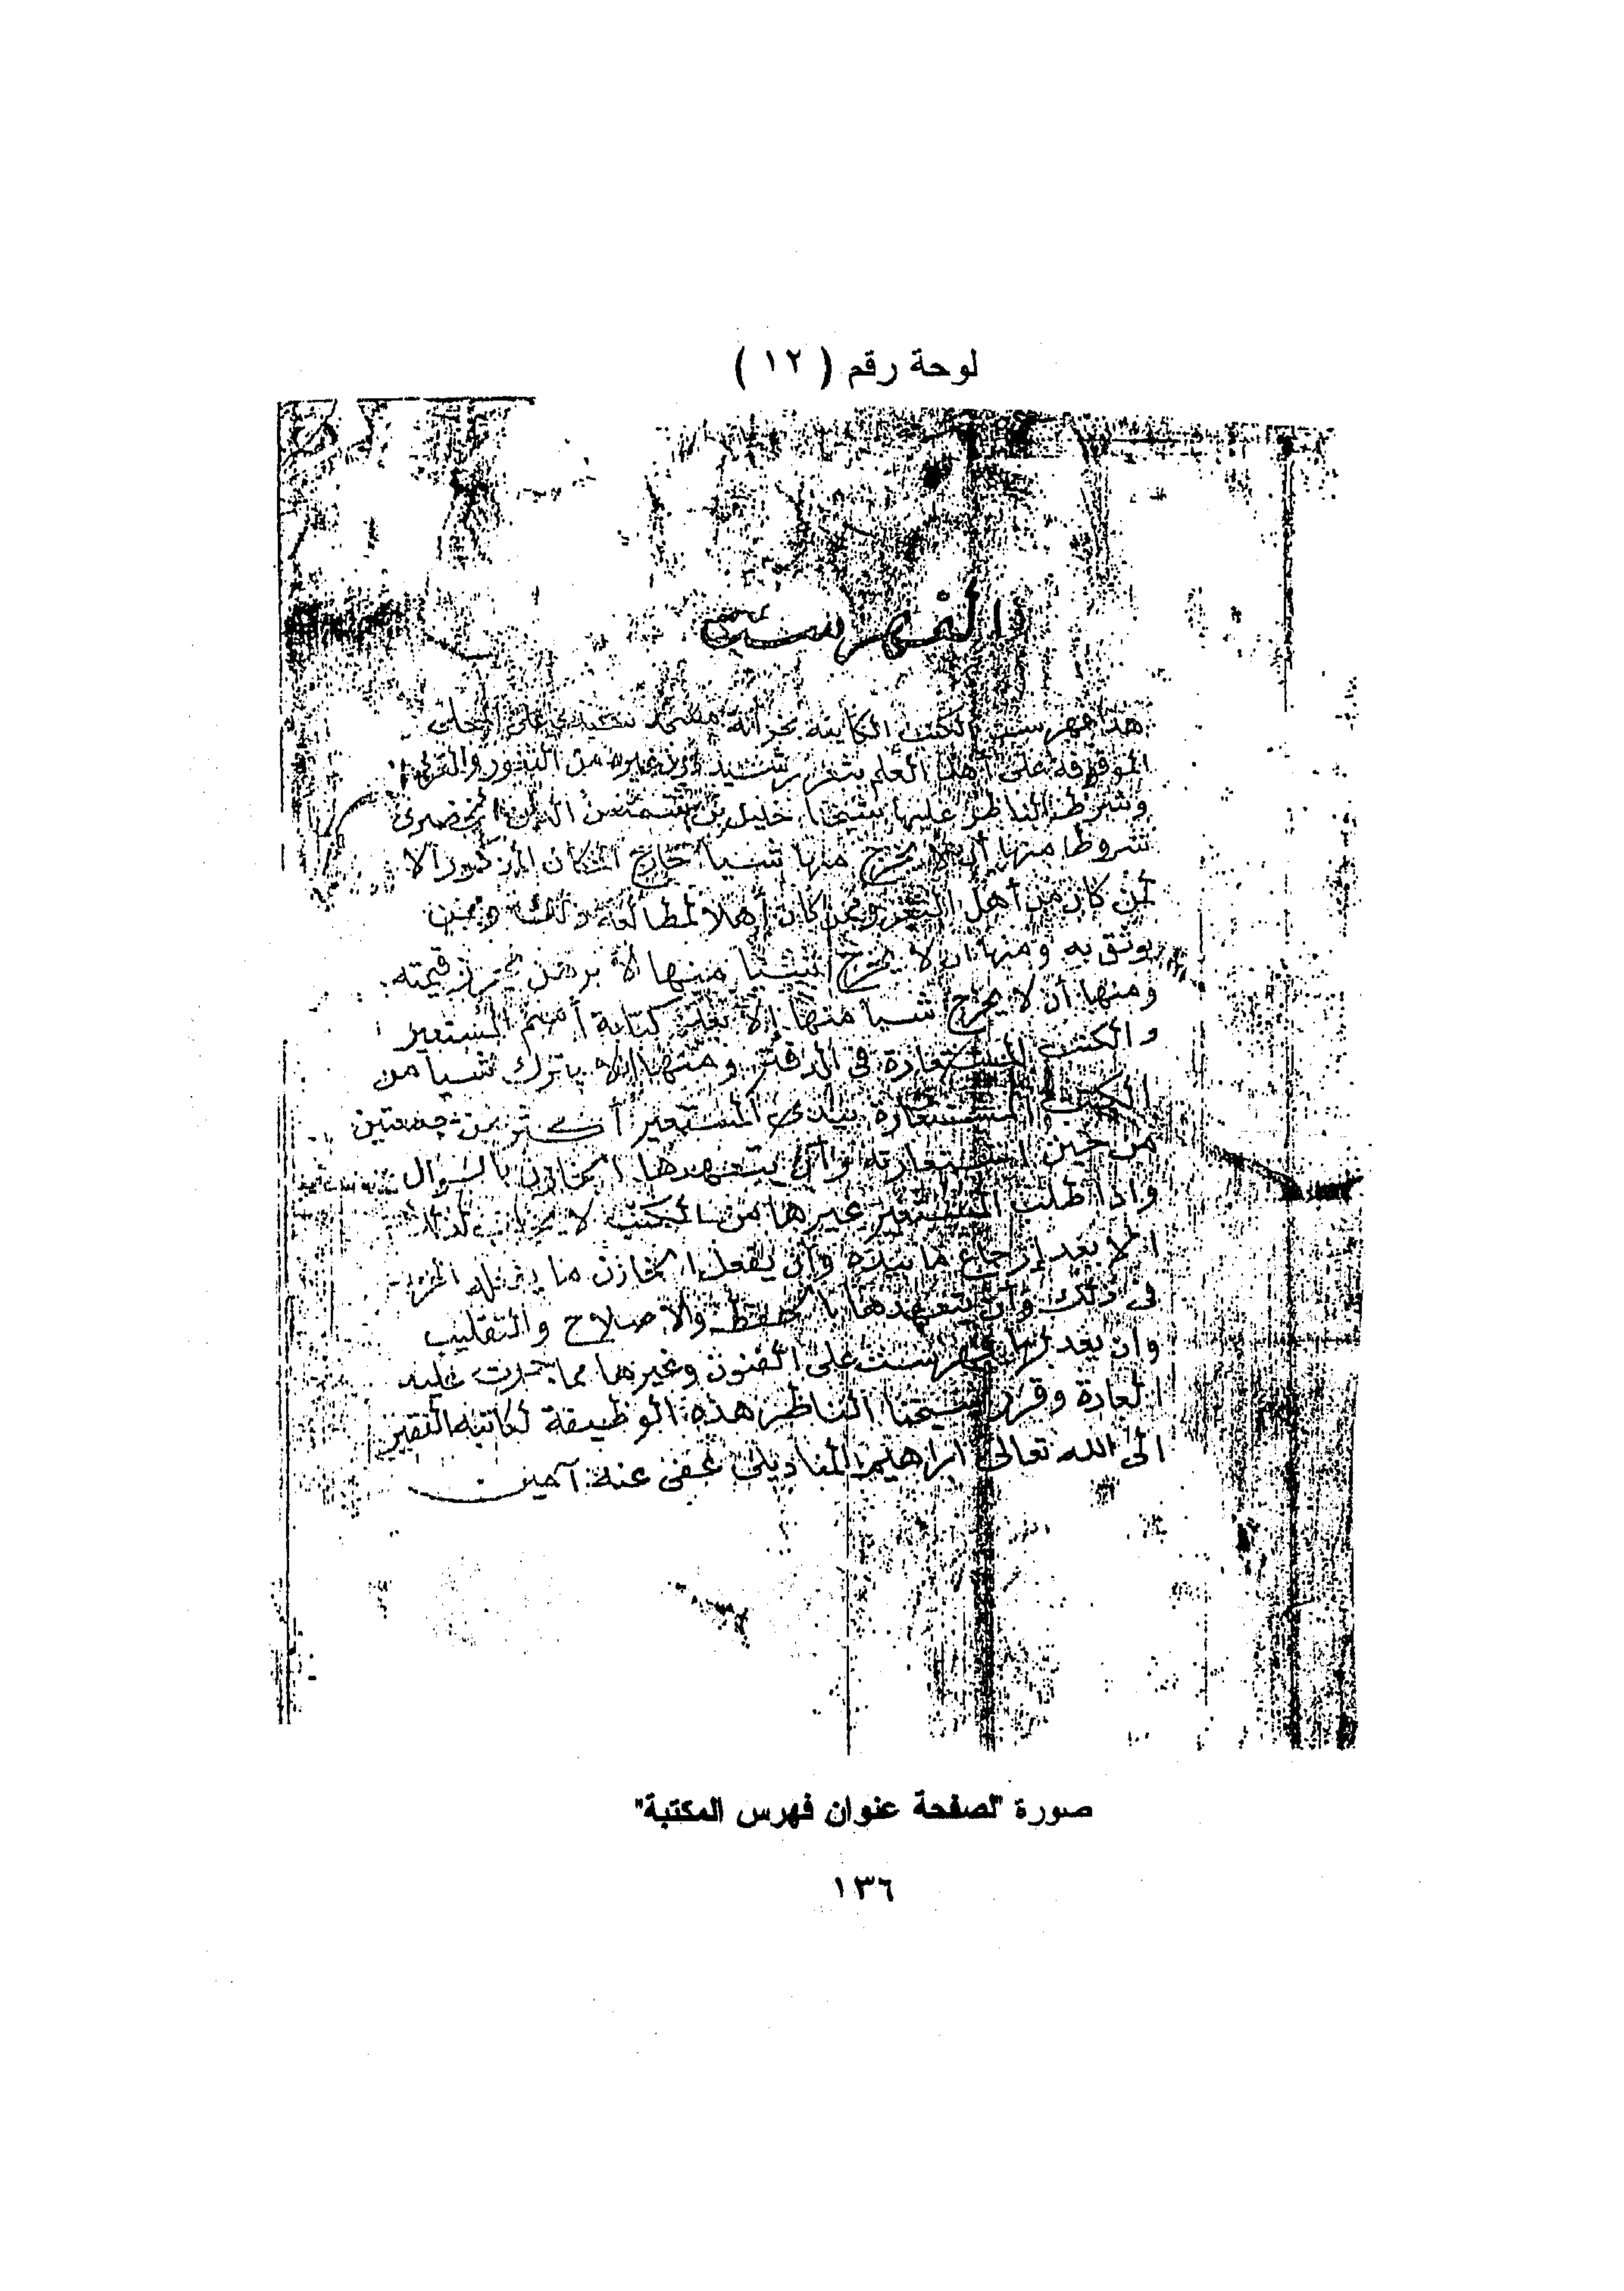 لوحة رقم ( ١٢ )
الفهرست
هذا فهرست الكتب الكاينة بخزانة مسجد سيدى على المحلى
الموقوفة على أهل العلم بثغر رشيد دون غيره من الثغور والقرى
وشرط الناظر عليها شيخنا خليل بن شمس الدين الخضرى
شروطا منها أن لا يخرج منها شيأ خارج المكان المذكور الا
لمن كان من أهل الثغر وممن كان أهلا لمطالعة ذلك وممن
يوثق به ومنها ان لا يخرج شيئا منها الا برهن يحرز قيمته
ومنها أن لا يخرج شيأ منها إلا بعد كتابة أسم المستعير
والكتب المستعارة فى الدفتر ومنها ان لا يترك شيأ من
الكتب المستعارة بيدى المستعير أكثر من جمعتين
من حين استعارته وأن يتعهدها الخازن بالسوال
واذا طلب المستعير غيرها من الكتب لا يجاب لذلك
الا بعد إرجاع ما بيده وأن يفعل الخازن ما يفعله
فى ذلك وأن يتعهدها بالحفظ والاصلاح والتقليب
وان يعد لها فهرست على الفنون وغيرها مما جرت عليه
العادة وقرر شيخنا الناظر هذه الوظيفة لكاتبه الفقير
الى الله تعالى ابراهيم المناديلى عفى عنه آمين
صورة "لصفحة عنوان فهرس المكتبة"
١٣٦